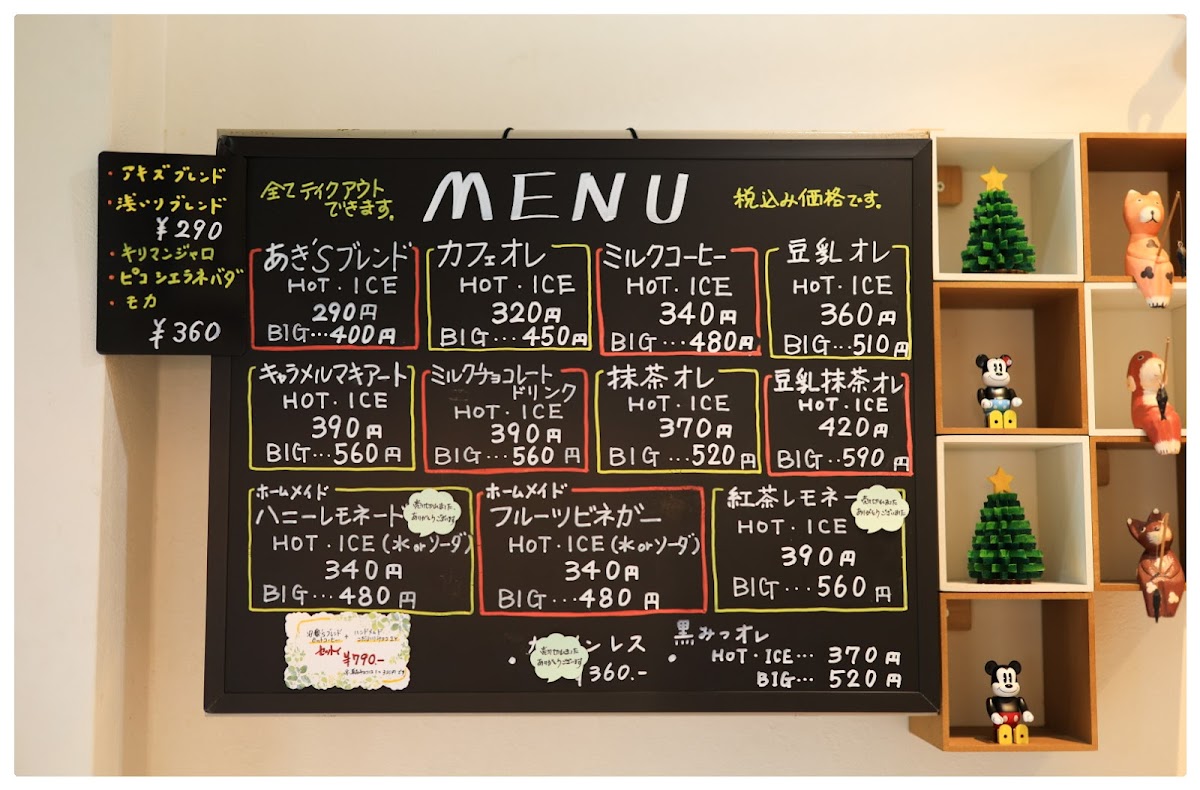 ・アキズブレンド
・浅いりブレンド
¥290
・キリマンジャロ
・ピコシエラネバダ
・モカ
¥360
全てテイクアウト
できます。
MENU
税込み価格です。
あき'Sブレンド
HOT・ICE
290円
BIG…400円
カフェオレ
HOT・ICE
320円
BIG…450円
ミルクコーヒー
HOT・ICE
340円
BIG…480円
豆乳オレ
HOT・ICE
360円
BIG…510円
キャラメルマキアート
HOT・ICE
390円
BIG…560円
ミルクチョコレート
ドリンク
HOT・ICE
390円
BIG…560円
抹茶オレ
HOT・ICE
370円
BIG…520円
豆乳抹茶オレ
HOT・ICE
420円
BIG‥590円
ホームメイド
ハニーレモネード
売り切れました
ありがとうございます
HOT・ICE(水orソーダ)
340円
BIG…480円
ホームメイド
フルーツビネガー
HOT・ICE(水orソーダ)
340円
BIG…480円
紅茶レモネー
売り切れました
ありがとうございました
HOT・ICE
390円
BIG…560円
セットで
¥790.-
・ンレス
売り切れました
ありがとうございます
360.-
・黒みつオレ
HOT・ICE… 370円
BIG… 520円